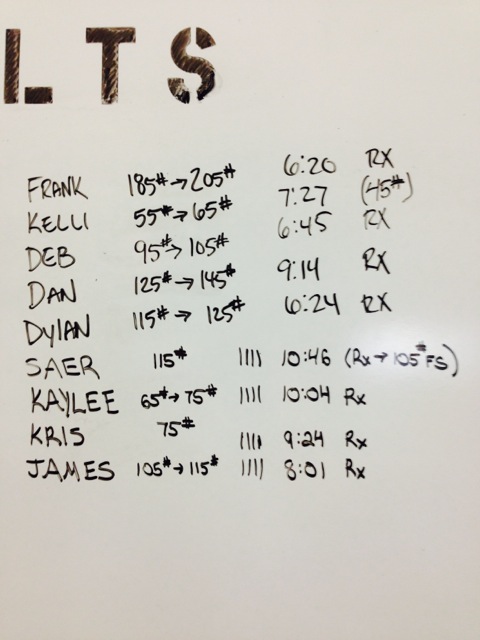 LTS
FRANK 185# → 205# 6:20 RX
KELLI 55# → 65# 7:27 (45#)
DEB 95# → 105# 6:45 RX
DAN 125# → 145# 9:14 RX
DYLAN 115# → 125# 6:24 RX
SAER 115# |||| 10:46 (Rx → 105# FS)
KAYLEE 65# → 75# |||| 10:04 Rx
KRIS 75# |||| 9:24 Rx
JAMES 105# → 115# |||| 8:01 Rx